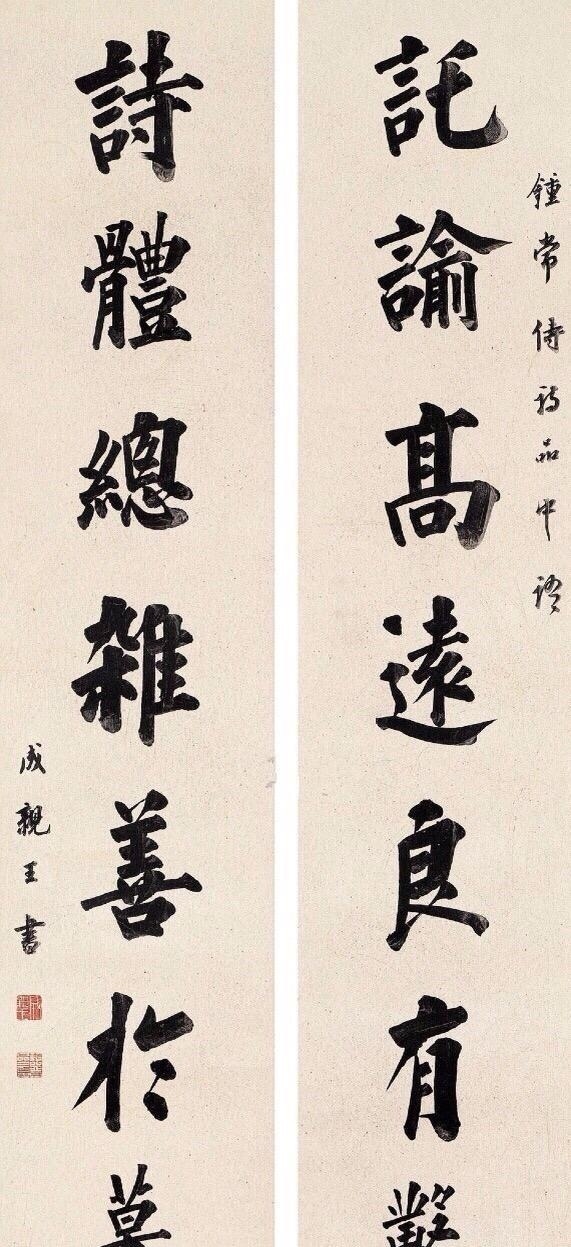 鍾常侍詩品中語
託諭高遠良有鑿
詩體總雜善於摹
成親王書